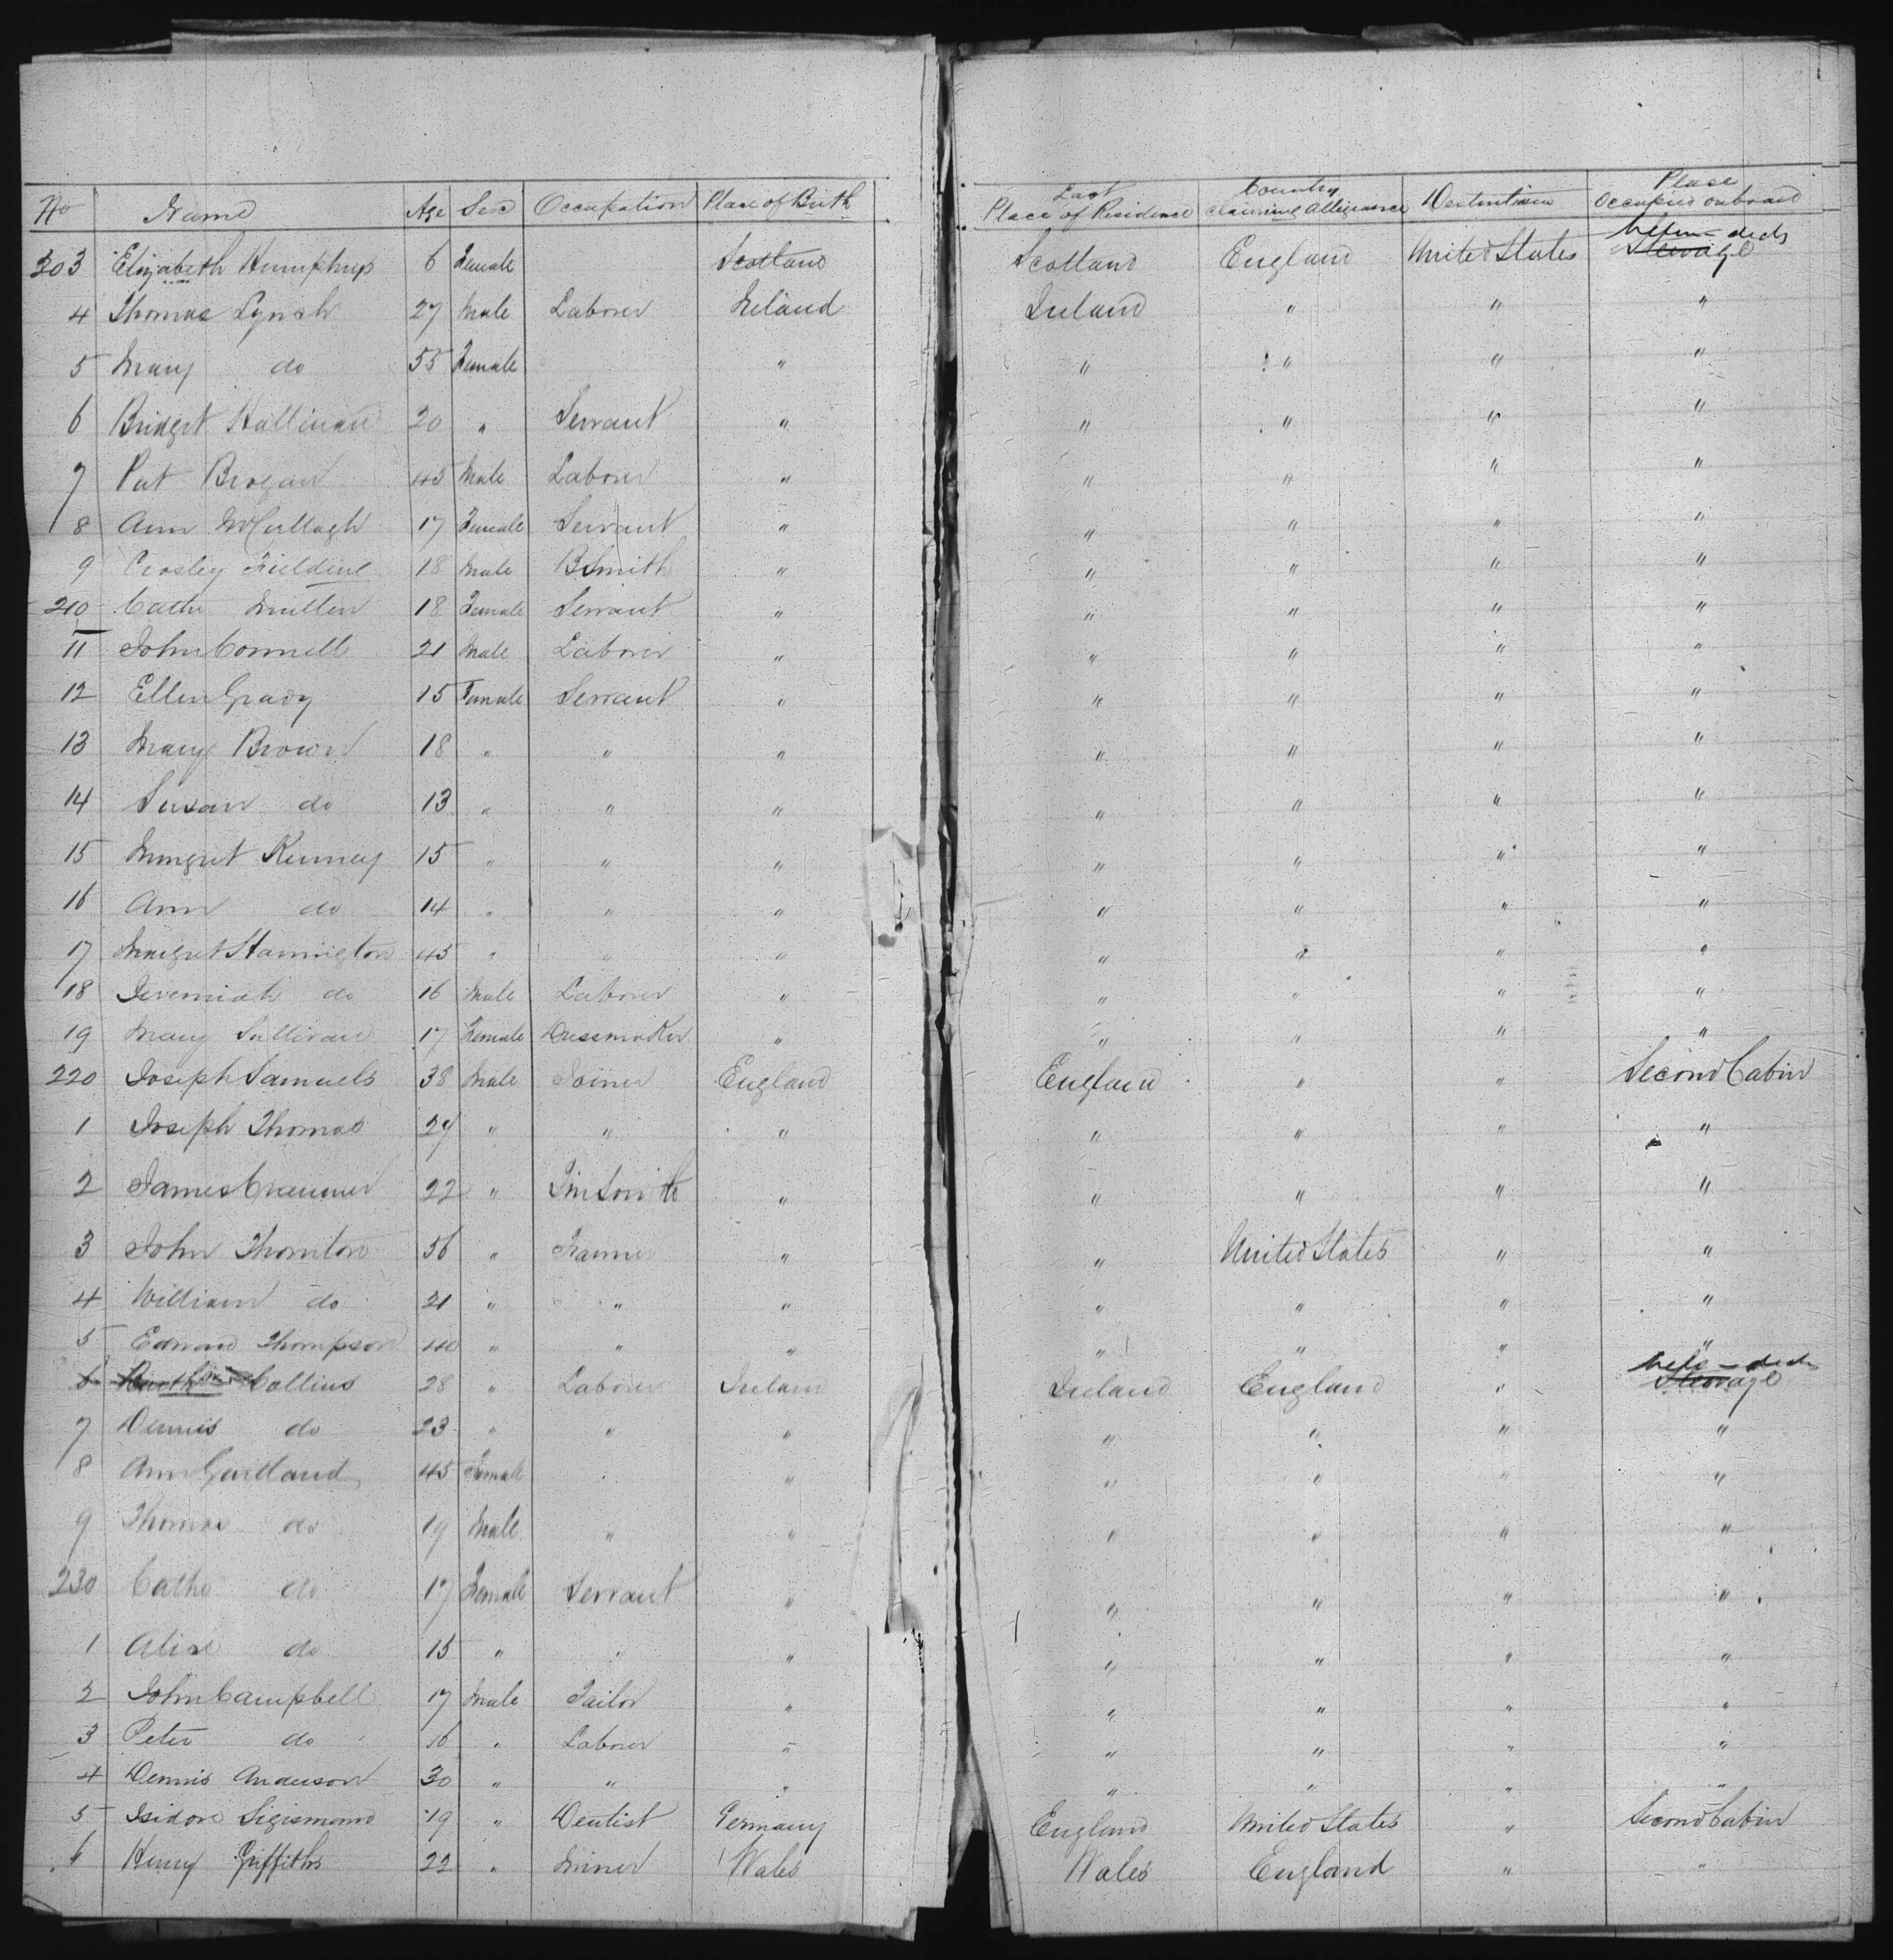 No Name Age Sex Occupation Place of Birth Last Place of Residence Country Claiming Allegiance Destination Place Occupied onboard
203 Elizabeth Humphrys 6 Female Scotland Scotland England United States Steerage
4 Thomas Lynch 27 Male Laborer Ireland Ireland " " "
5 Mary do 55 Female " " " " "
6 Bridget Hallinan 20 " Servant " " " " "
7 Pat Brogan 45 Male Laborer " " " " "
8 Ann McCullagh 17 Female Servant " " " " "
9 Crosley 18 Male BSmith " " " " "
210 Cathe 18 Female Servant " " " " "
11 John Connell 21 Male Laborer " " " " "
12 Ellen Grady 15 Female Servant " " " " "
13 Mary Brown 18 " " " " " " "
14 Susan do 13 " " " " " " "
15 Margret Kenney 15 " " " " " " "
16 Ann do 14 " " " " " " "
17 Margret Hannington 45 " " " " " " "
18 Jeremiah do 16 Male Laborer " " " " "
19 Mary Sullivan 17 Female Dressmaker " " " " "
220 Joseph Samuels 38 Male Joiner England England " " Second Cabin
1 Joseph Thomas 27 " " " " " " "
2 James 22 " Tin Smith " " " " "
3 John Thornton 56 " Farmer " " United States " "
4 William do 21 " " " " " " "
5 Edward Thompson 40 " " " " " " "
6 Collins 28 " Laborer Ireland Ireland England " Steerage
7 Dennis do 23 " " " " " " "
8 Ann Gartland 45 Female " " " " "
9 Thomas do 19 Male " " " " " "
230 Cathe do 17 Female Servant " " " " "
1 Alice do 15 " " " " " " "
2 John Campbell 17 Male Tailor " " " " "
3 Peter do 16 " Laborer " " " " "
4 Dennis Anderson 30 " " " " " " "
5 Isidore Sigismond 19 " Dentist Germany England United States " Second Cabin
6 Henry Griffiths 22 " Miner Wales Wales England " "